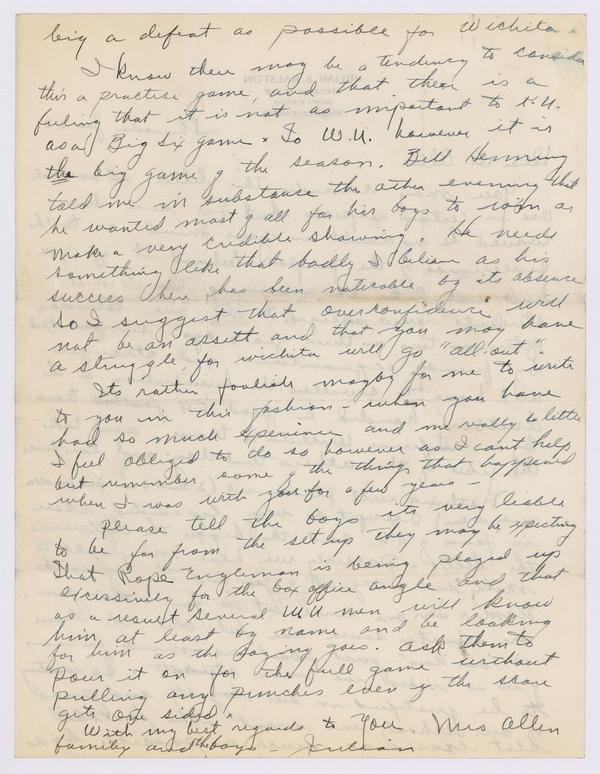 big a defeat as possible for Wichita.
I know there may be a tendency to consider
this a practise game, and that there is a
feeling that it is not as important to K.U.
as a Big Six game. To W.U. however it is
the big game of the season. Bill Henning
told me in substance the other evening that
he wanted most of all for his boys to win or
make a very credible showing. He needs
something like that badly I believe as his
success here has been noticable by its absence
So I suggest that overconfidence will
not be an assett and that you may have
a struggle for wichita will go "all out".
Its rather foolish mayby for me to write
to you in this fashion - when you have
had so much experience and me really so little
I feel obliged to do so however as I cant help
but remember some of the things that happened
when I was with you for a few years -
please tell the boys its very leable
to be far from the set up they may be expecting
That Rope Engleman is being played up
excessively for the box office angle and that
as a result several WU men will know
him at least by name and be looking
for him as the saying goes. ask them to
pour it on for the full game without
pulling any punches even if the score
gets one sided.
With my best regards to You, Mrs Allen
family and the boys - Julian